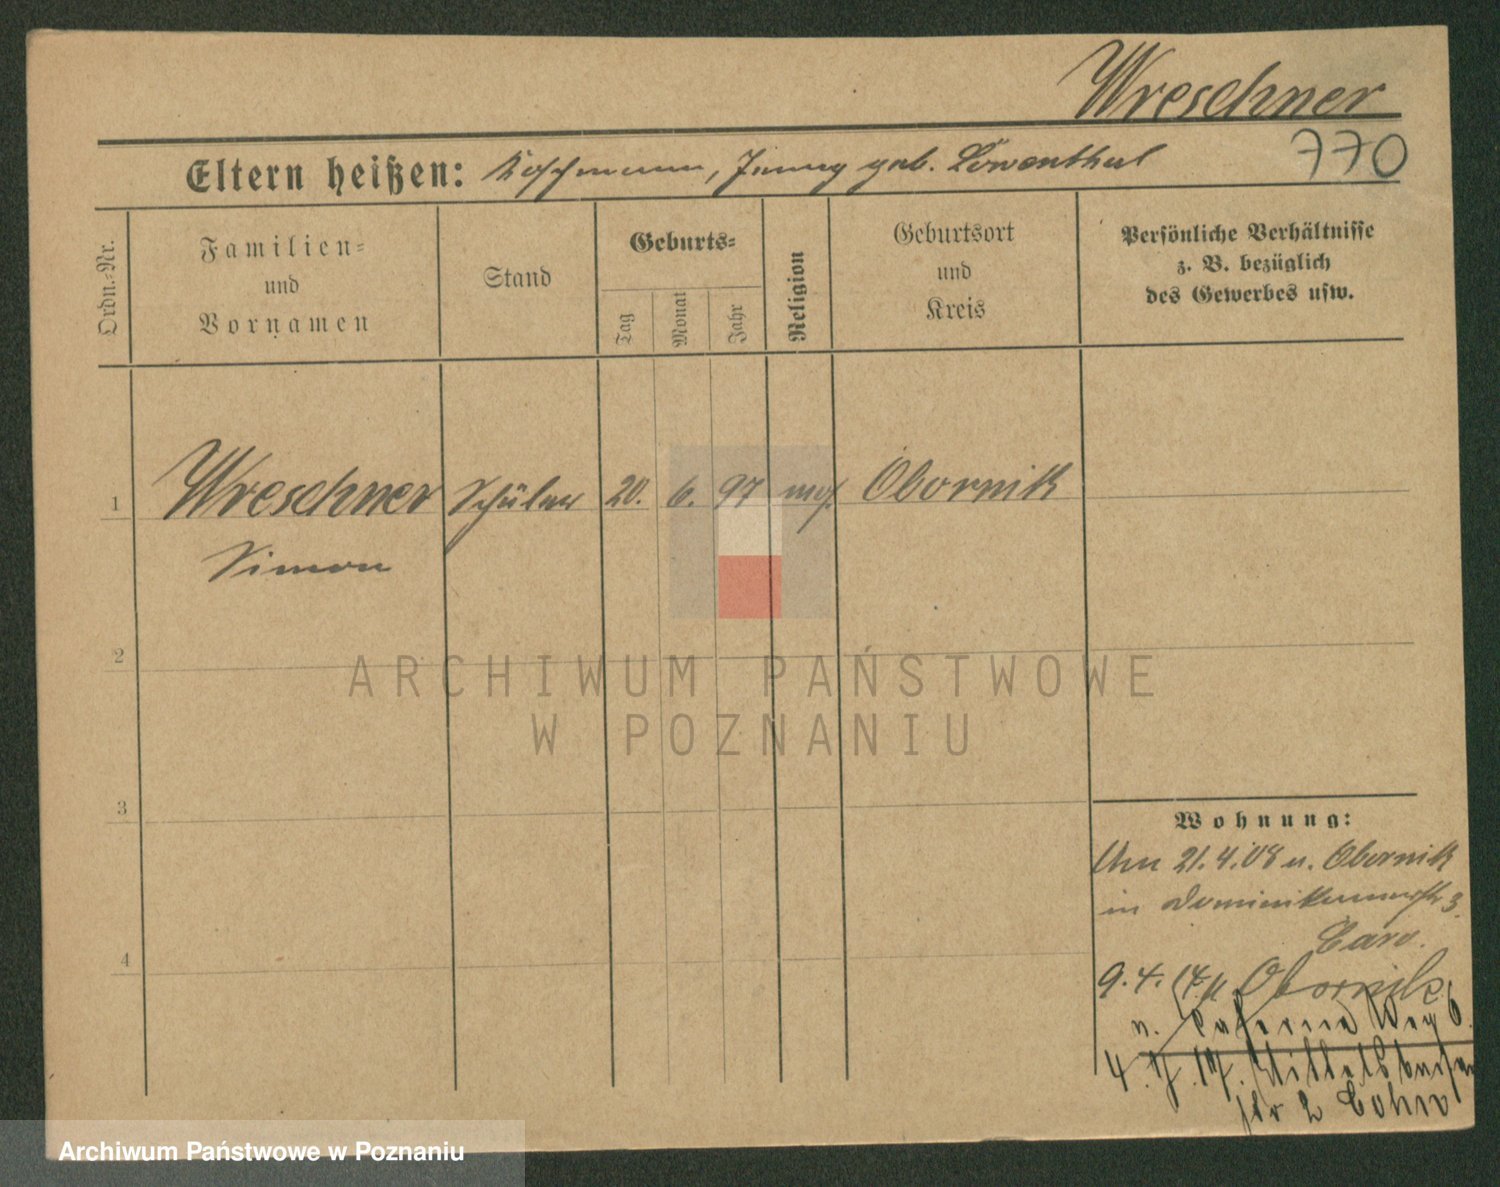 Wreschner
Eltern heißen: Koschmann, Jenny geb. Löwenthal 770
Ordn.-Nr.
Familien-
und
Vornamen
Stand
Geburts-
Tag
Monat
Jahr
Religion
Geburtsort
und
Kreis
Persönliche Verhältnisse
z. B. bezüglich
des Gewerbes usw.
1 Wreschner Schüler 20. 6. 97 mos. Obornik
Simon
2
3
4
ARCHIWUM PAŃSTWOWE
W POZNANIU
Wohnung:
21.4.08 n. Obornik
in Dominikanerstr 3.
Caro.
9.4.14 Obornik
n. Weg 6.
4. 17.
2 Cohn
Archiwum Państwowe w Poznaniu